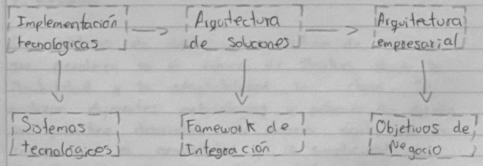 Implementación
tecnologicas
Arquitectura
de soluciones
Arquitectura
empresarial
Sistemas
tecnologicos
Famework de
Integración
Objetivos de
Negocio